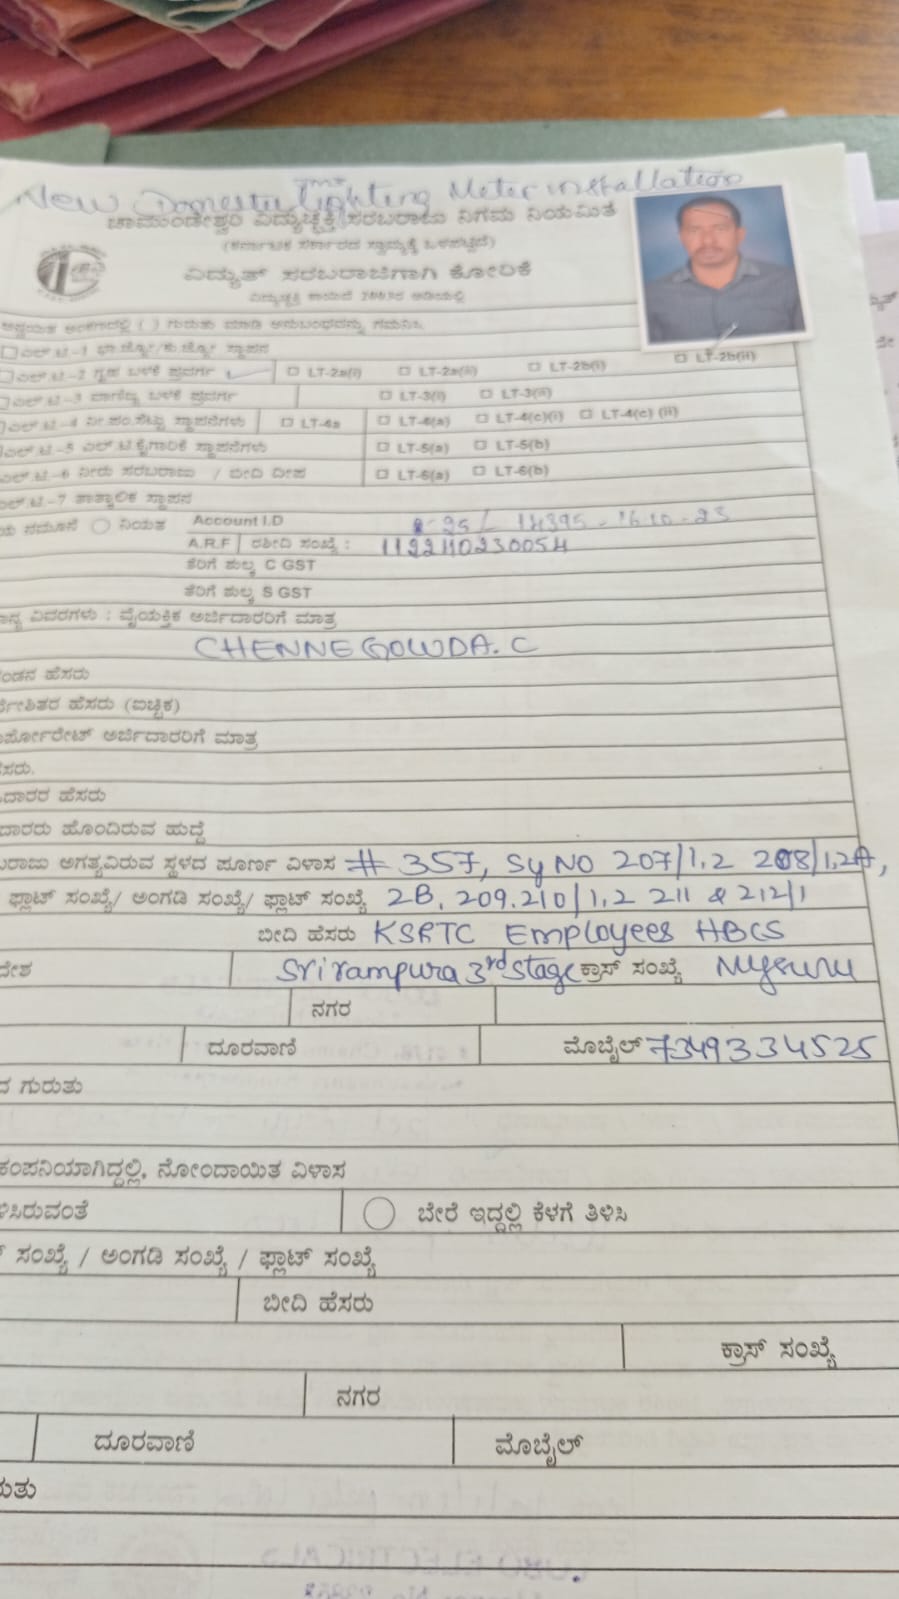 New Domestic Lighting Meter installation
ಚಾಮುಂಡೇಶ್ವರಿ ವಿದ್ಯುಚ್ಛಕ್ತಿ ಸರಬರಾಜು ನಿಗಮ ನಿಯಮಿತ
(ಕರ್ನಾಟಕ ಸರ್ಕಾರದ ಸ್ವಾಮ್ಯಕ್ಕೆ ಒಳಪಟ್ಟಿದೆ)
ವಿದ್ಯುತ್ ಸರಬರಾಜಿಗಾಗಿ ಕೋರಿಕೆ
ವಿದ್ಯುಚ್ಛಕ್ತಿ ಕಾಯಿದೆ 2003ರ ಅಡಿಯಲ್ಲಿ
( ) ಗುರುತು ಮಾಡಿ
ಎಲ್.ಟಿ-1 ಭಾ.ಜ್ಯೋ/ಕು.ಜ್ಯೋ ಸ್ಥಾಪನ
ಎಲ್.ಟಿ-2 ಗೃಹ ಬಳಕೆ ಪ್ರವರ್ಗ LT-2a(i) LT-2a(ii) LT-2b(i) LT-2b(ii)
ಎಲ್.ಟಿ-3 ವಾಣಿಜ್ಯ ಬಳಕೆ ಪ್ರವರ್ಗ LT-3(i) LT-3(ii)
ಎಲ್.ಟಿ-4 ನೀ.ಪಂ.ಸೆಟ್ಟು ಸ್ಥಾಪನೆಗಳು LT-4a LT-4(a) LT-4(c)(i) LT-4(c) (ii)
ಎಲ್.ಟಿ-5 ಎಲ್.ಟಿ.ಕೈಗಾರಿಕೆ ಸ್ಥಾಪನೆಗಳು LT-5(a) LT-5(b)
ಎಲ್.ಟಿ-6 ನೀರು ಸರಬರಾಜು / ಬೀದಿ ದೀಪ LT-6(a) LT-6(b)
ಎಲ್.ಟಿ-7 ತಾತ್ಕಾಲಿಕ ಸ್ಥಾಪನ
ನಮೂನೆ ನಿಯತ Account I.D 25/ 14395-16.10-23
A.R.F ರಶೀದಿ ಸಂಖ್ಯೆ : 1122110230054
ತೆರಿಗೆ ಶುಲ್ಕ C GST
ತೆರಿಗೆ ಶುಲ್ಕ S GST
ವಿವರಗಳು : ವೈಯಕ್ತಿಕ ಅರ್ಜಿದಾರರಿಗೆ ಮಾತ್ರ
CHENNEGOWDA. C
ಂಡನ ಹೆಸರು
ರ್ದೇಶಿತರ ಹೆಸರು (ಐಚ್ಛಿಕ)
ರ್ಪೋರೇಟ್ ಅರ್ಜಿದಾರರಿಗೆ ಮಾತ್ರ
ಸರು.
ದಾರರ ಹೆಸರು
ದಾರರು ಹೊಂದಿರುವ ಹುದ್ದೆ
ಬರಾಜು ಅಗತ್ಯವಿರುವ ಸ್ಥಳದ ಪೂರ್ಣ ವಿಳಾಸ # 357, Sy NO 207/1,2 208/1,2A,
ಫ್ಲಾಟ್ ಸಂಖ್ಯೆ/ ಅಂಗಡಿ ಸಂಖ್ಯೆ/ ಫ್ಲಾಟ್ ಸಂಖ್ಯೆ 2B, 209.210/1,2 211 & 212/1
ಬೀದಿ ಹೆಸರು KSRTC Employees HBCS
ದೇಶ Srirampura 3rd Stage ಕ್ರಾಸ್ ಸಂಖ್ಯೆ Mysuru
ನಗರ
ದೂರವಾಣಿ ಮೊಬೈಲ್ 7349334525
ದ ಗುರುತು
ಕಂಪನಿಯಾಗಿದ್ದಲ್ಲಿ, ನೋಂದಾಯಿತ ವಿಳಾಸ
ಳಿಸಿರುವಂತೆ ಬೇರೆ ಇದ್ದಲ್ಲಿ ಕೆಳಗೆ ತಿಳಿಸಿ
ಸಂಖ್ಯೆ / ಅಂಗಡಿ ಸಂಖ್ಯೆ / ಫ್ಲಾಟ್ ಸಂಖ್ಯೆ
ಬೀದಿ ಹೆಸರು
ಕ್ರಾಸ್ ಸಂಖ್ಯೆ
ನಗರ
ದೂರವಾಣಿ ಮೊಬೈಲ್
ರುತು